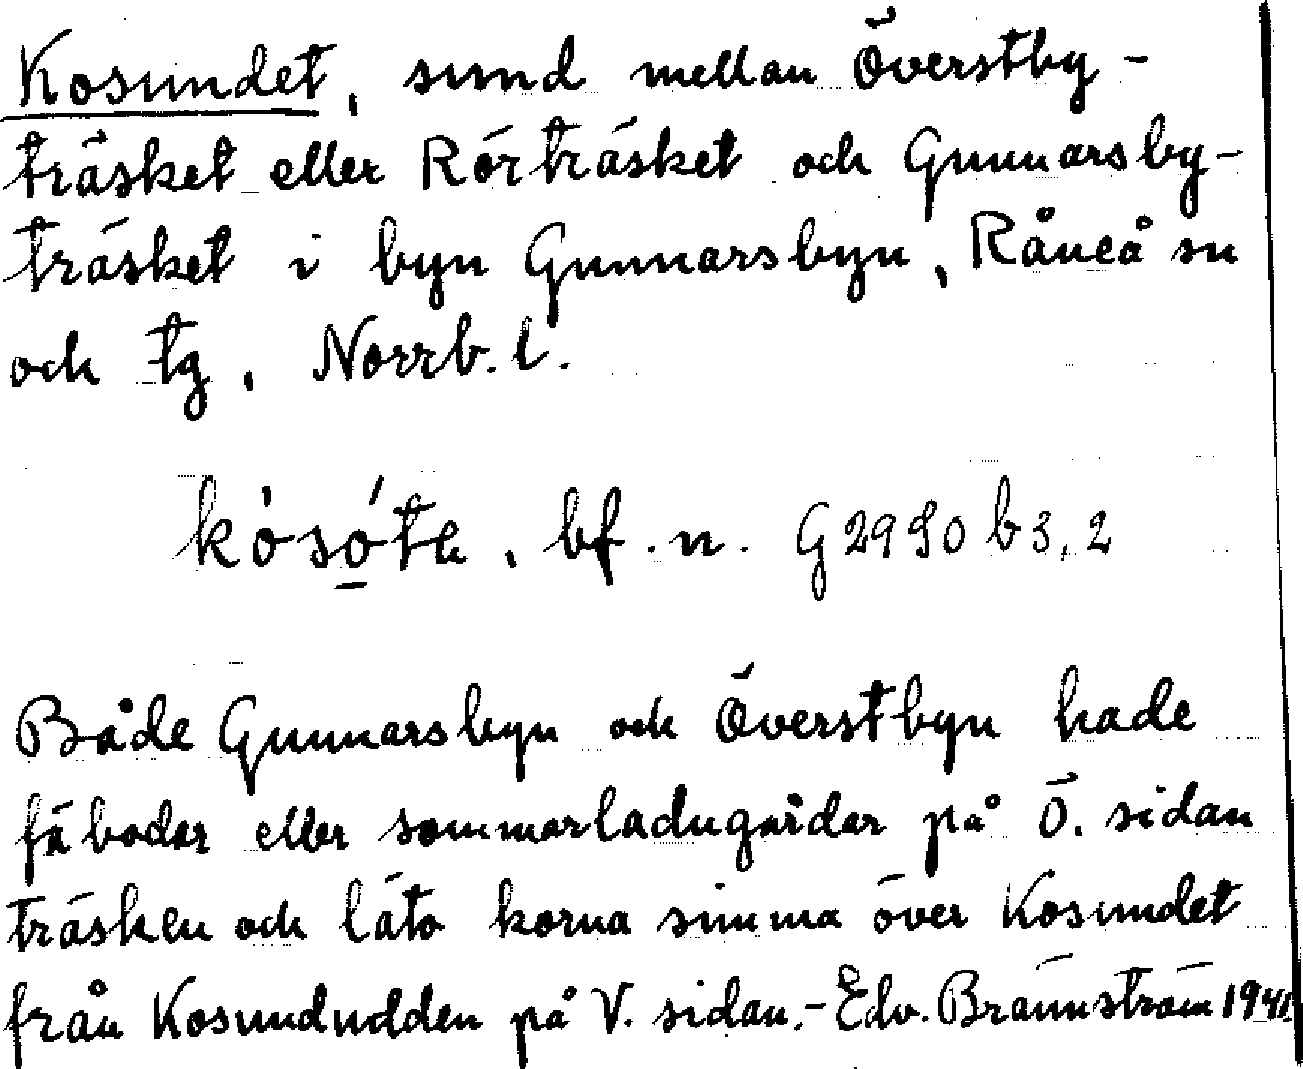 Kosundet, sund mellan Överstby-
träsket eller Rörträsket och Gunnarsby-
träsket i byn Gunnarsbyn, Råneå sn
och tg, Norrb. l.
bf. n. G 2990 b 3, 2
Både Gunnarsbyn och Överstbyn hade
fäboder eller sommarladugårdar på Ö. sidan
träsken och läto korna simma över Kosundet
från Kosundudden på V. sidan. - Edv. Brännström 1941